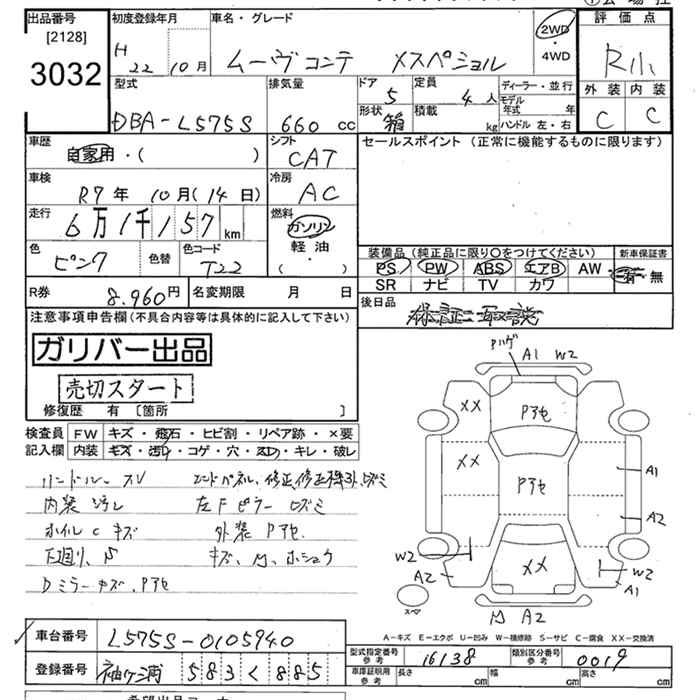 出品番号
[2128]
3032
初度登録年月
H 22 10月
車名・グレード
ムーヴ コンテ メスペショル
2WD
・
4WD
評価点
R小
外装 内装
C C
型式
DBA-L575S
排気量
660 cc
ドア
5
定員
4人
形状
箱
積載
kg
ディーラー・並行
モデル年式 年
ハンドル 左・右
車歴
自家用・( )
シフト
CAT
車検
R7年 10月(14日)
冷房
AC
走行
6万1千157km
燃料
ガソリン
軽油
( ・ )
色
ピンク
色替
色コード
T22
セールスポイント(正常に機能するものに限ります)
装備品(純正品に限り〇をつけてください)
新車保証書
PS PW ABS エアB AW
SR ナビ TV カワ
有・無
後日品
保証書 取説
R券
8.960円
名変期限 月 日
注意事項申告欄(不具合内容等は具体的に記入して下さい)
ガリバー出品
売切スタート
修復歴 有 [箇所 ]
検査員
記入欄
FW キズ・飛石・ヒビ割・リペア跡・×要
内装 キズ・汚れ・コゲ・穴・スレ・キレ・破レ
ハンドル、スレ
内装 汚レ
ホイル C キズ
下廻り、S
Dミラーキズ、Pアセ
エンドパネル、修正、修正機跡、ヒズミ
左Fピラー ヒズミ
外装 Pアセ
キズ、M、ホシュウ
Pハゲ
A1 W2
XX
Pアセ
XX
Pアセ
A1
A2
XX
W2
A2
W2
A1
スペア
A2
A-キズ E-エクボ U-凹み W-補修跡 S-サビ C-腐食 XX-交換済
車台番号
L575S-0105940
登録番号
袖ケ浦 583く885
型式指定番号
参考
16138
類別区分番号
参考
0019
車庫証明用
参考
長さ cm
幅 cm
高さ cm